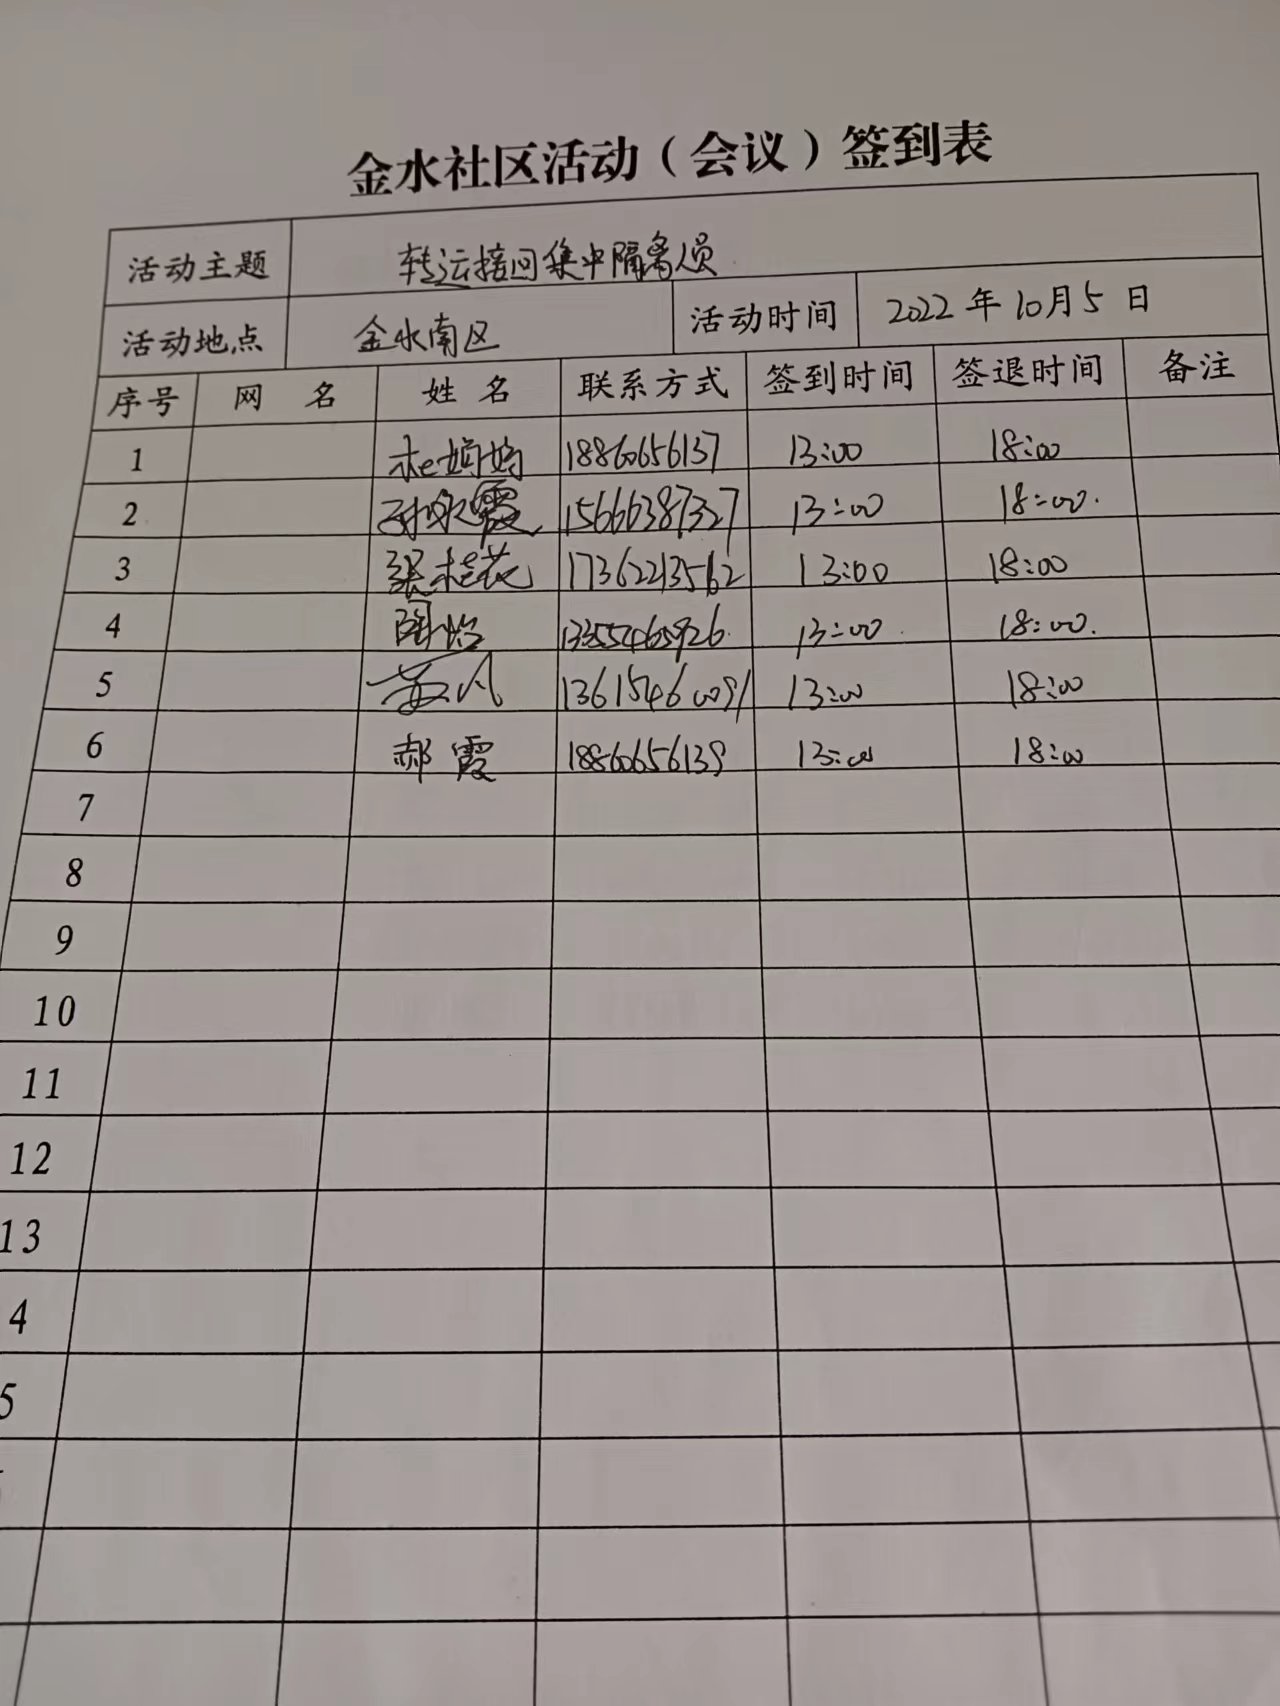 金水社区活动（会议）签到表
活动主题 转运接回集中隔离人员
活动地点 金水南区 活动时间 2022年10月5日
序号 网 名 姓 名 联系方式 签到时间 签退时间 备注
1 18860656137 13:00 18:00
2 霞 15666387327 13:00 18:00.
3 张桂花 17362213562 13:00 18:00
4 陶怡 13:00 18:00.
5 13615460091 13:00 18:00
6 郝霞 18860656139 13:00 18:00
7
8
9
10
11
12
13
4
5